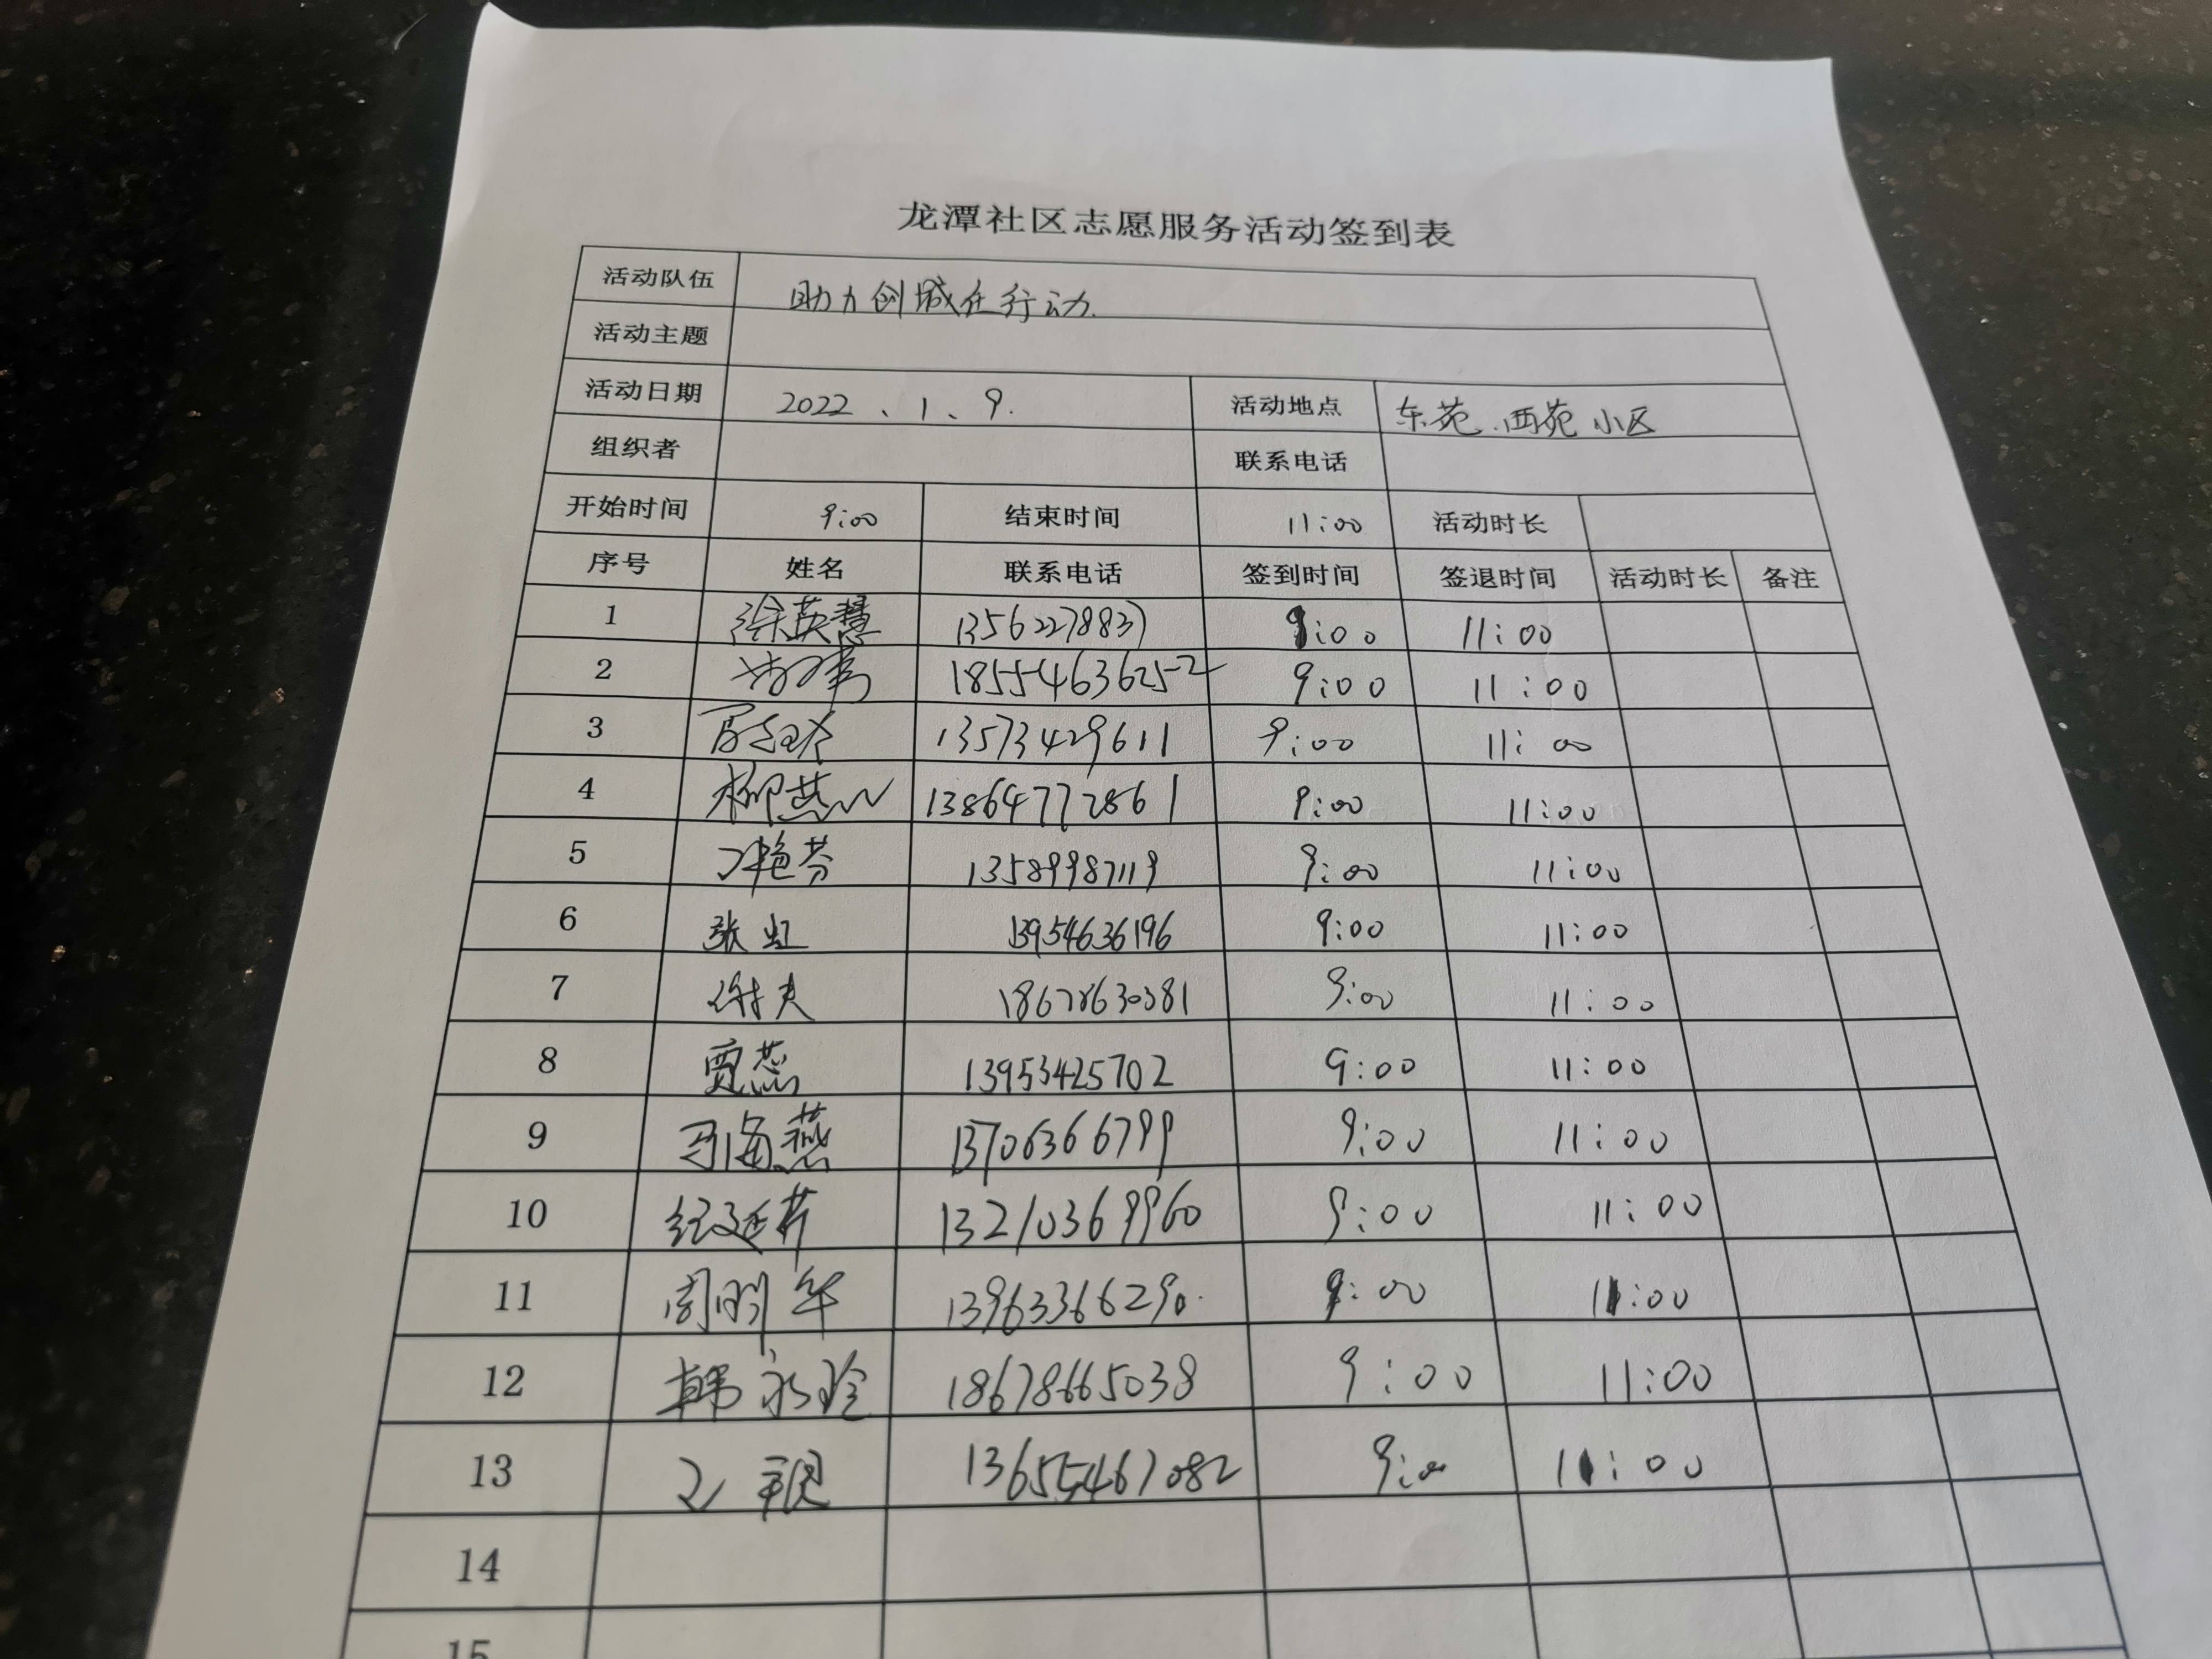 龙潭社区志愿服务活动签到表
活动队伍 助力创城在行动
活动主题
活动日期 2022、1、9. 活动地点 东苑、西苑小区
组织者 联系电话
开始时间 9:00 结束时间 11:00 活动时长
序号 姓名 联系电话 签到时间 签退时间 活动时长 备注
1 徐英慧 13562278837 9:00 11:00
2 18554636252 9:00 11:00
3 13573429611 9:00 11:00
4 柳燕 13864772861 9:00 11:00
5 刁艳芬 13589987119 9:00 11:00
6 张虹 13954636196 9:00 11:00
7 18678630381 9:00 11:00
8 贾蕊 13953425702 9:00 11:00
9 马海燕 13706366799 9:00 11:00
10 纪延芹 13210369960 9:00 11:00
11 周明华 13963366290. 9:00 11:00
12 韩永玲 18678665038 9:00 11:00
13 13655461082 9:00 11:00
14
15